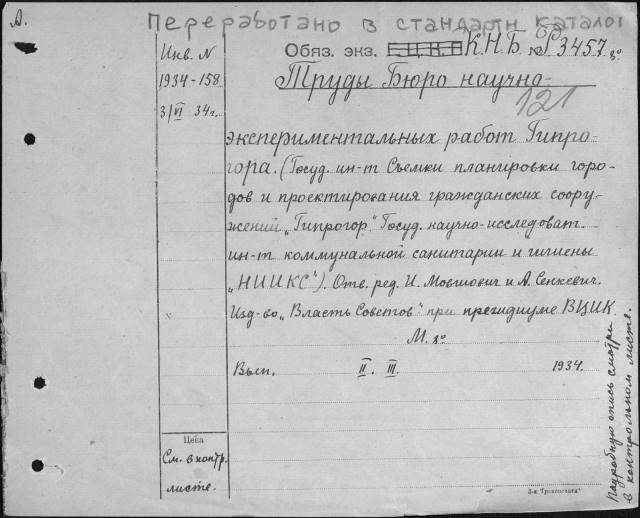 А.
Переработано в стандартн каталог
Инв. N
1934-158
3/VI 34г.
Обяз. экз. Б.Ц.В.Т К.Н.Б. № Р3457 8°
Труды Бюро научно-
121
экспериментальных работ Гипро-
гора. (Госуд. ин-т Съемки планировки горо-
дов и проектирования гражданских соору-
жений „Гипрогор." Госуд. научно-исследоват.
ин-т коммунальной санитарии и гигиены
„НИИКС"). Отв. ред. И. Мовшович и А. Сенкевич.
Изд-во „Власть Советов" при президиуме ВЦИК.
М. 8°
Вып. II. III. 1934.
Цена
См. в контр.
листе.
Подробную опись смотри
в контрольном листе.
3-я Транспечать